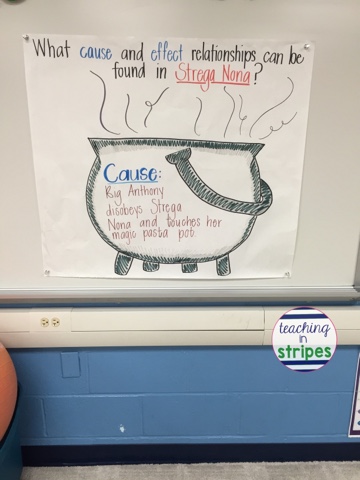 What cause and effect relationships can be
found in Strega Nona?
Cause:
Big Anthony
disobeys Strega
Nona and touches her
magic pasta pot.
teaching
in
stripes